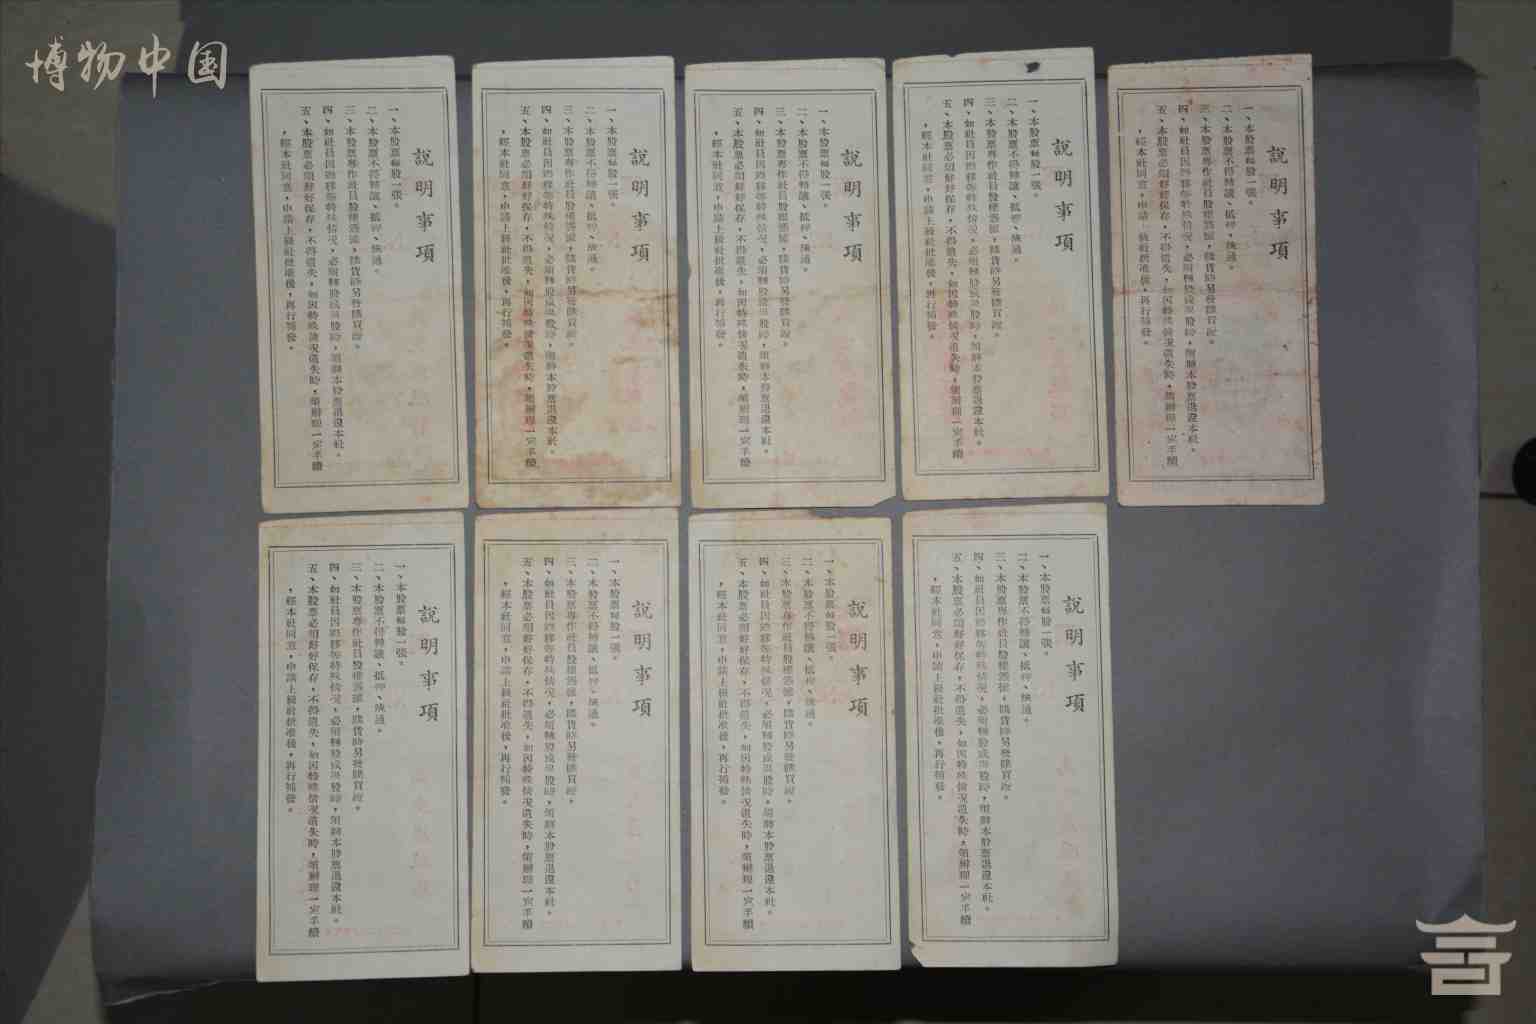 博物中国
說明事項
一、本股票每股一張。
二、本股票不得轉讓、抵押、流通。
三、本股票專作社員股權憑證，購貨時另發購買證。
四、如社員因遷移等特殊情況，必須轉股或退股時，須將本股票退還本社。
五、本股票必須好好保存，不得遺失，如因特殊情況遺失時，須辦理一定手續
，經本社同意，申請上級社批准後，再行補發。
說明事項
一、本股票每股一張。
二、本股票不得轉讓、抵押、流通。
三、本股票專作社員股權憑證，購貨時另發購買證。
四、如社員因遷移等特殊情況，必須轉股或退股時，須將本股票退還本社。
五、本股票必須好好保存，不得遺失，如因特殊情況遺失時，須辦理一定手續
，經本社同意，申請上級社批准後，再行補發。
說明事項
一、本股票每股一張。
二、本股票不得轉讓、抵押、流通。
三、本股票專作社員股權憑證，購貨時另發購買證。
四、如社員因遷移等特殊情況，必須轉股或退股時，須將本股票退還本社。
五、本股票必須好好保存，不得遺失，如因特殊情況遺失時，須辦理一定手續
，經本社同意，申請上級社批准後，再行補發。
說明事項
一、本股票每股一張。
二、本股票不得轉讓、抵押、流通。
三、本股票專作社員股權憑證，購貨時另發購買證。
四、如社員因遷移等特殊情況，必須轉股或退股時，須將本股票退還本社。
五、本股票必須好好保存，不得遺失，如因特殊情況遺失時，須辦理一定手續
，經本社同意，申請上級社批准後，再行補發。
說明事項
一、本股票每股一張。
二、本股票不得轉讓、抵押、流通。
三、本股票專作社員股權憑證，購貨時另發購買證。
四、如社員因遷移等特殊情況，必須轉股或退股時，須將本股票退還本社。
五、本股票必須好好保存，不得遺失，如因特殊情況遺失時，須辦理一定手續
，經本社同意，申請上級社批准後，再行補發。
說明事項
一、本股票每股一張。
二、本股票不得轉讓、抵押、流通。
三、本股票專作社員股權憑證，購貨時另發購買證。
四、如社員因遷移等特殊情況，必須轉股或退股時，須將本股票退還本社。
五、本股票必須好好保存，不得遺失，如因特殊情況遺失時，須辦理一定手續
，經本社同意，申請上級社批准後，再行補發。
說明事項
一、本股票每股一張。
二、本股票不得轉讓、抵押、流通。
三、本股票專作社員股權憑證，購貨時另發購買證。
四、如社員因遷移等特殊情況，必須轉股或退股時，須將本股票退還本社。
五、本股票必須好好保存，不得遺失，如因特殊情況遺失時，須辦理一定手續
，經本社同意，申請上級社批准後，再行補發。
說明事項
一、本股票每股一張。
二、本股票不得轉讓、抵押、流通。
三、本股票專作社員股權憑證，購貨時另發購買證。
四、如社員因遷移等特殊情況，必須轉股或退股時，須將本股票退還本社。
五、本股票必須好好保存，不得遺失，如因特殊情況遺失時，須辦理一定手續
，經本社同意，申請上級社批准後，再行補發。
說明事項
一、本股票每股一張。
二、本股票不得轉讓、抵押、流通。
三、本股票專作社員股權憑證，購貨時另發購買證。
四、如社員因遷移等特殊情況，必須轉股或退股時，須將本股票退還本社。
五、本股票必須好好保存，不得遺失，如因特殊情況遺失時，須辦理一定手續
，經本社同意，申請上級社批准後，再行補發。